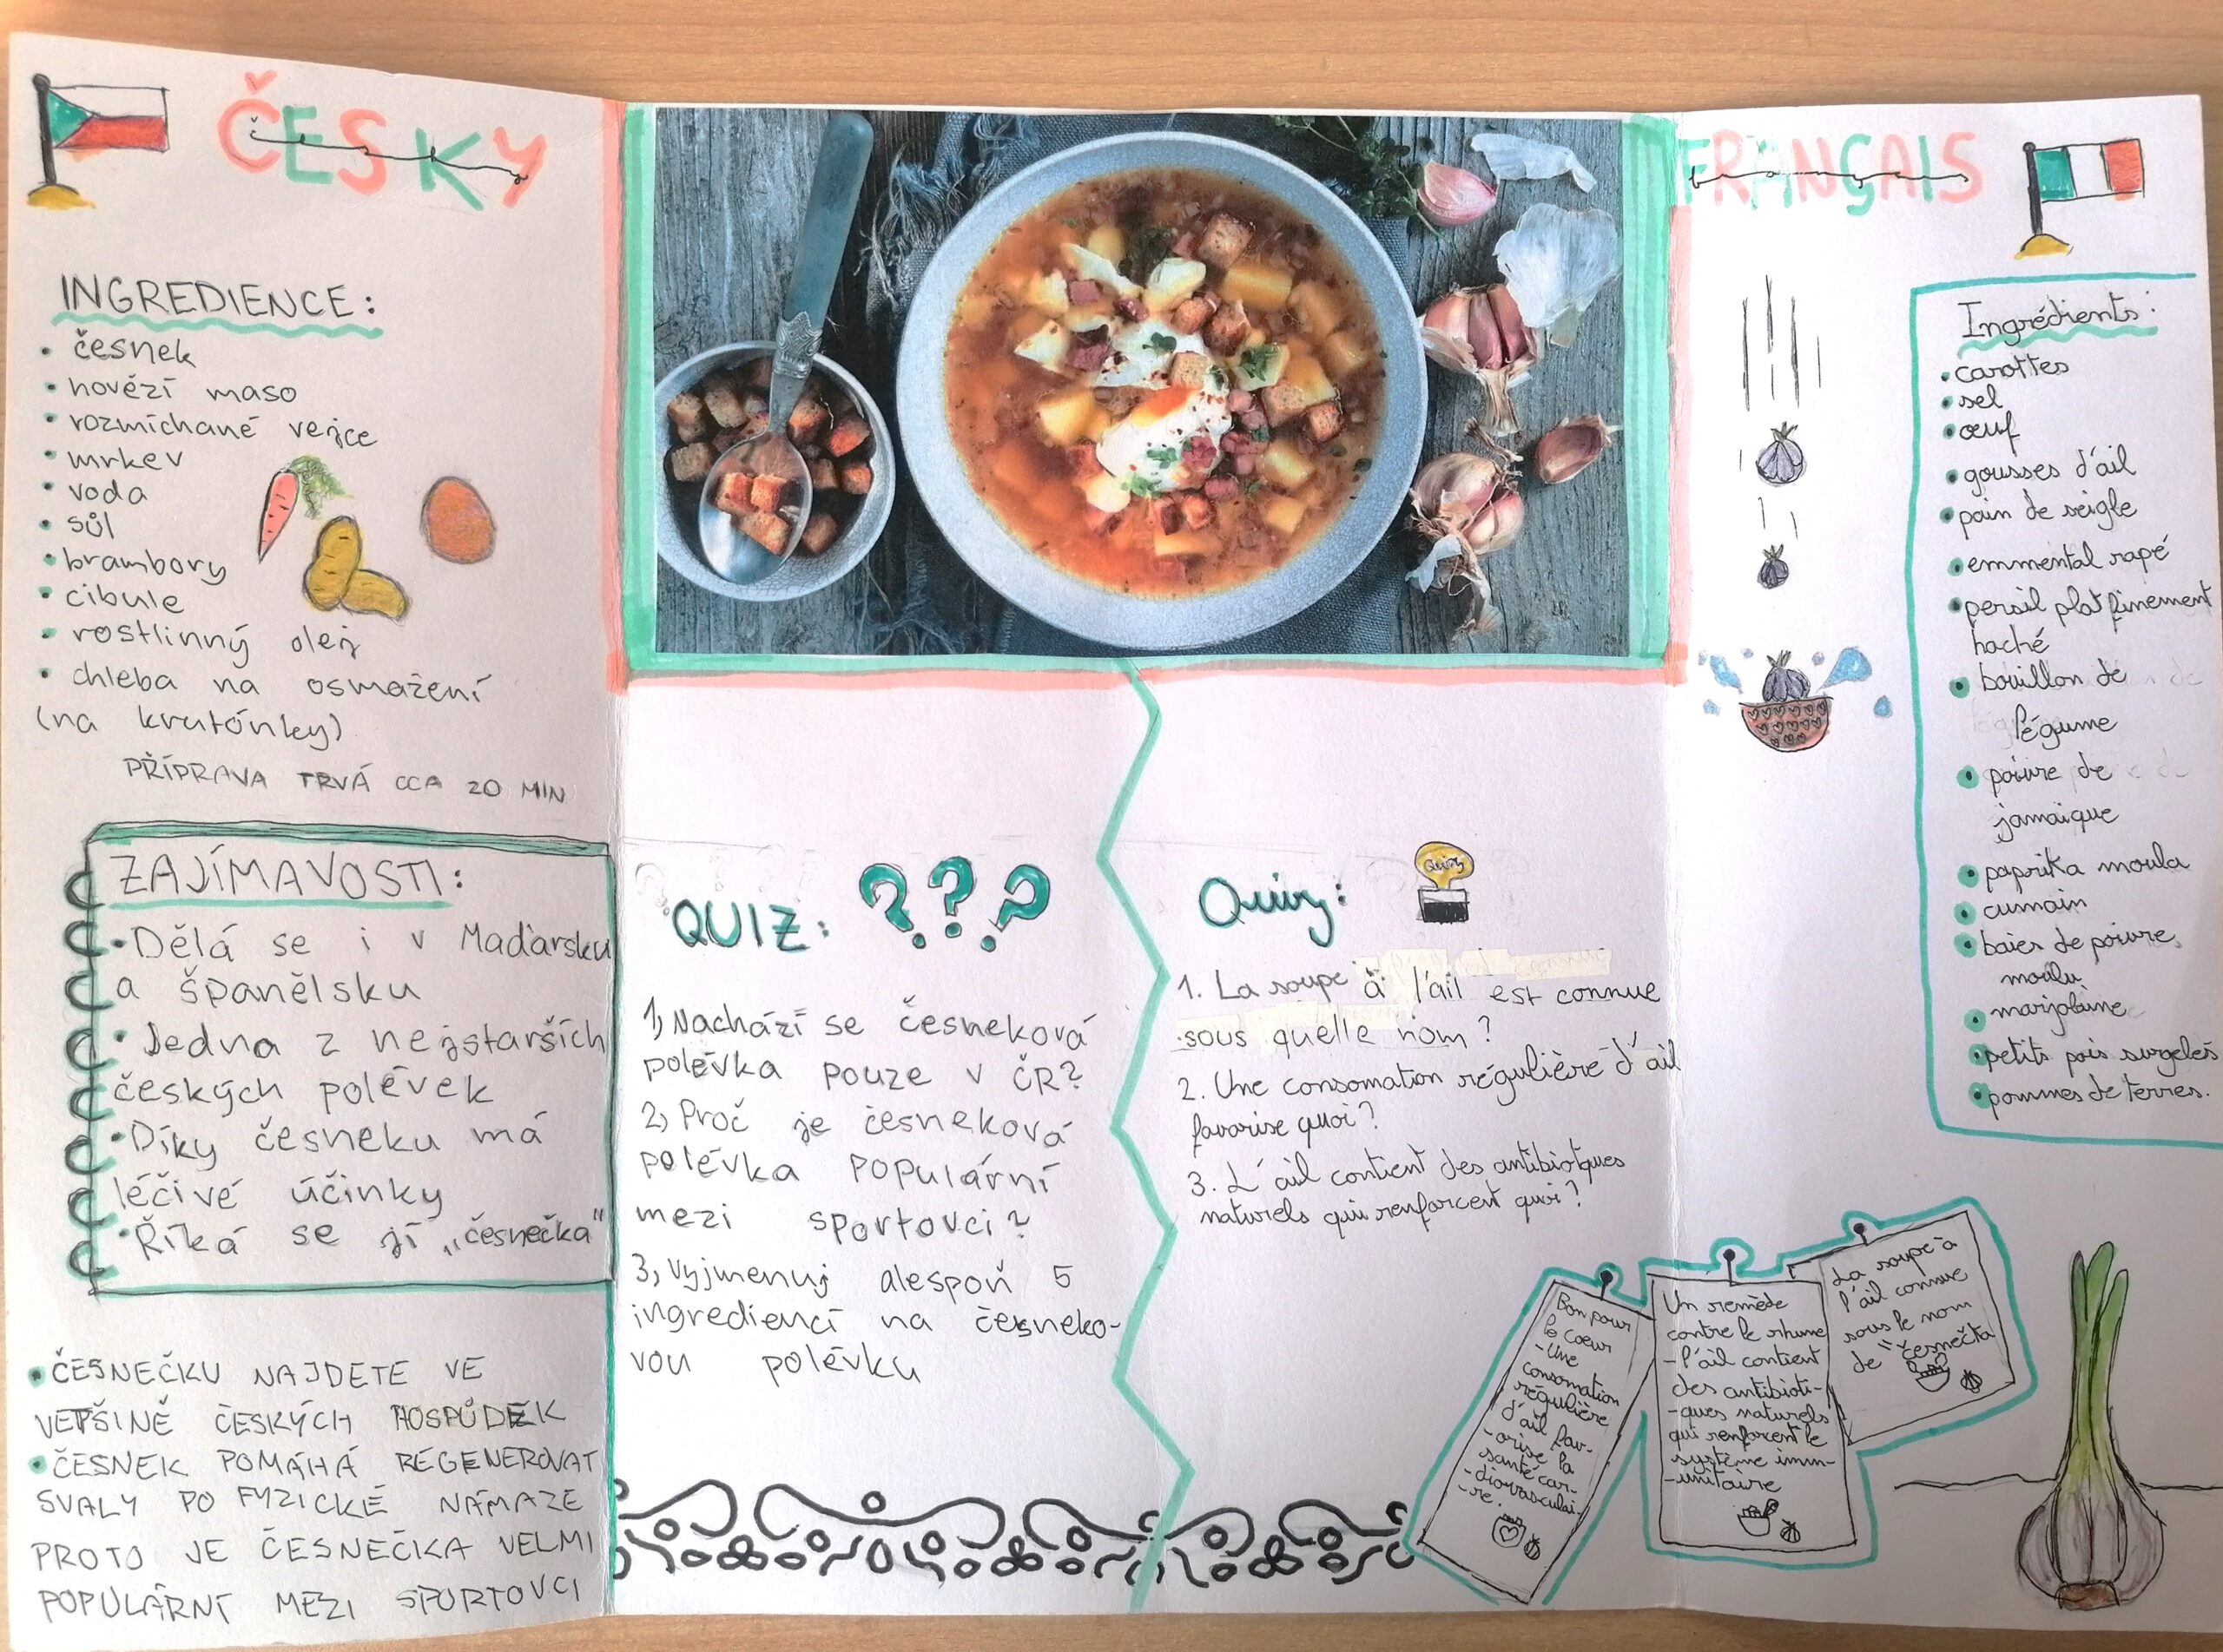 ČESKY
INGREDIENCE:
• česnek
• hovězí maso
• rozmíchané vejce
• mrkev
• voda
• sůl
• brambory
• cibule
• rostlinný olej
• chleba na osmažení
(na krutónky)
PŘÍPRAVA TRVÁ CCA 20 MIN
ZAJÍMAVOSTI:
• Dělá se i v Maďarsku
a španělsku
• Jedna z nejstarších
českých polévek
• Díky česneku má
léčivé účinky
• Říká se jí „česnečka“
• ČESNEČKU NAJDETE VE
VETŠINĚ ČESKÝCH HOSPŮDEK
• ČESNEK POMÁHÁ REGENEROVAT
SVALY PO FYZICKÉ NÁMAZE
PROTO JE ČESNEČKA VELMI
POPULÁRNÍ MEZI SPORTOVCI
QUIZ: ???
1) Nachází se česneková
polévka pouze v ČR?
2) Proč je česneková
polévka populární
mezi sportovci?
3) Vyjmenuj alespoň 5
ingrediencí na česneko-
vou polévku
Quiz:
Quiz
1. La soupe à l'ail est connue
sous quelle nom?
2. Une consomation régulière d'ail
favorise quoi?
3. L'ail contient des antibiotques
naturels qui renforcent quoi?
FRANÇAIS
Ingrédients:
• carottes
• sel
• œuf
• gousses d'ail
• pain de seigle
• emmental rapé
• persil plat finement
haché
• bouillon de
légume
• poivre de
jamaique
• paprika moula
• cumain
• baies de poivre
moulu
• marjolaine
• petits pois surgelés
• pommes de terres.
Bon pour
le coeur
- Une
consomation
régulière
d'ail fav-
-orise la
santé car-
-diovasculai-
-re.
Un remède
contre le rhume
- l'ail contient
des antibioti-
-ques naturels
qui renforcent le
système imm-
-unitaire
La soupe à
l'ail connue
sous le nom
de "česnečka